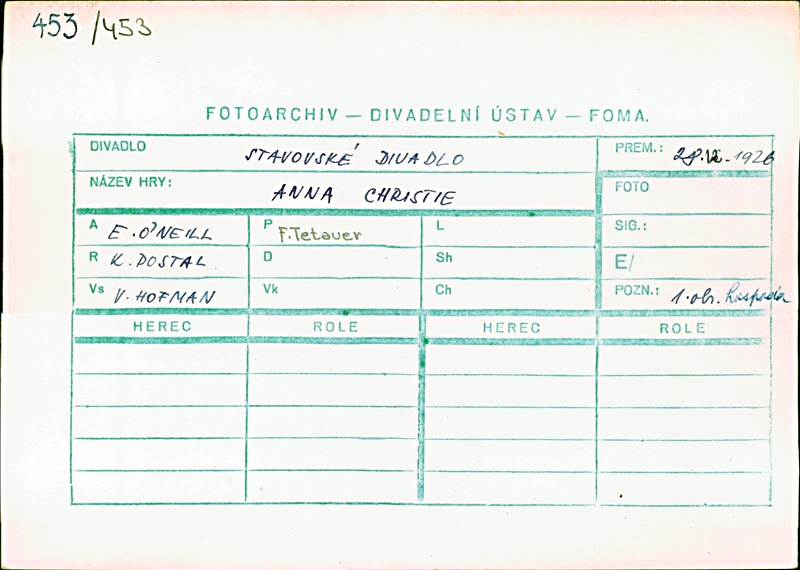 453 /453
FOTOARCHIV — DIVADELNÍ ÚSTAV — FOMA.
DIVADLO STAVOVSKÉ DIVADLO PREM.: 28.12.1926
NÁZEV HRY: ANNA CHRISTIE FOTO
A E. O'NEILL P F. Tetauer L SIG.:
R K. DOSTAL D Sh E/
Vs V. HOFMAN Vk Ch POZN.: 1. obr. hospoda
HEREC ROLE HEREC ROLE